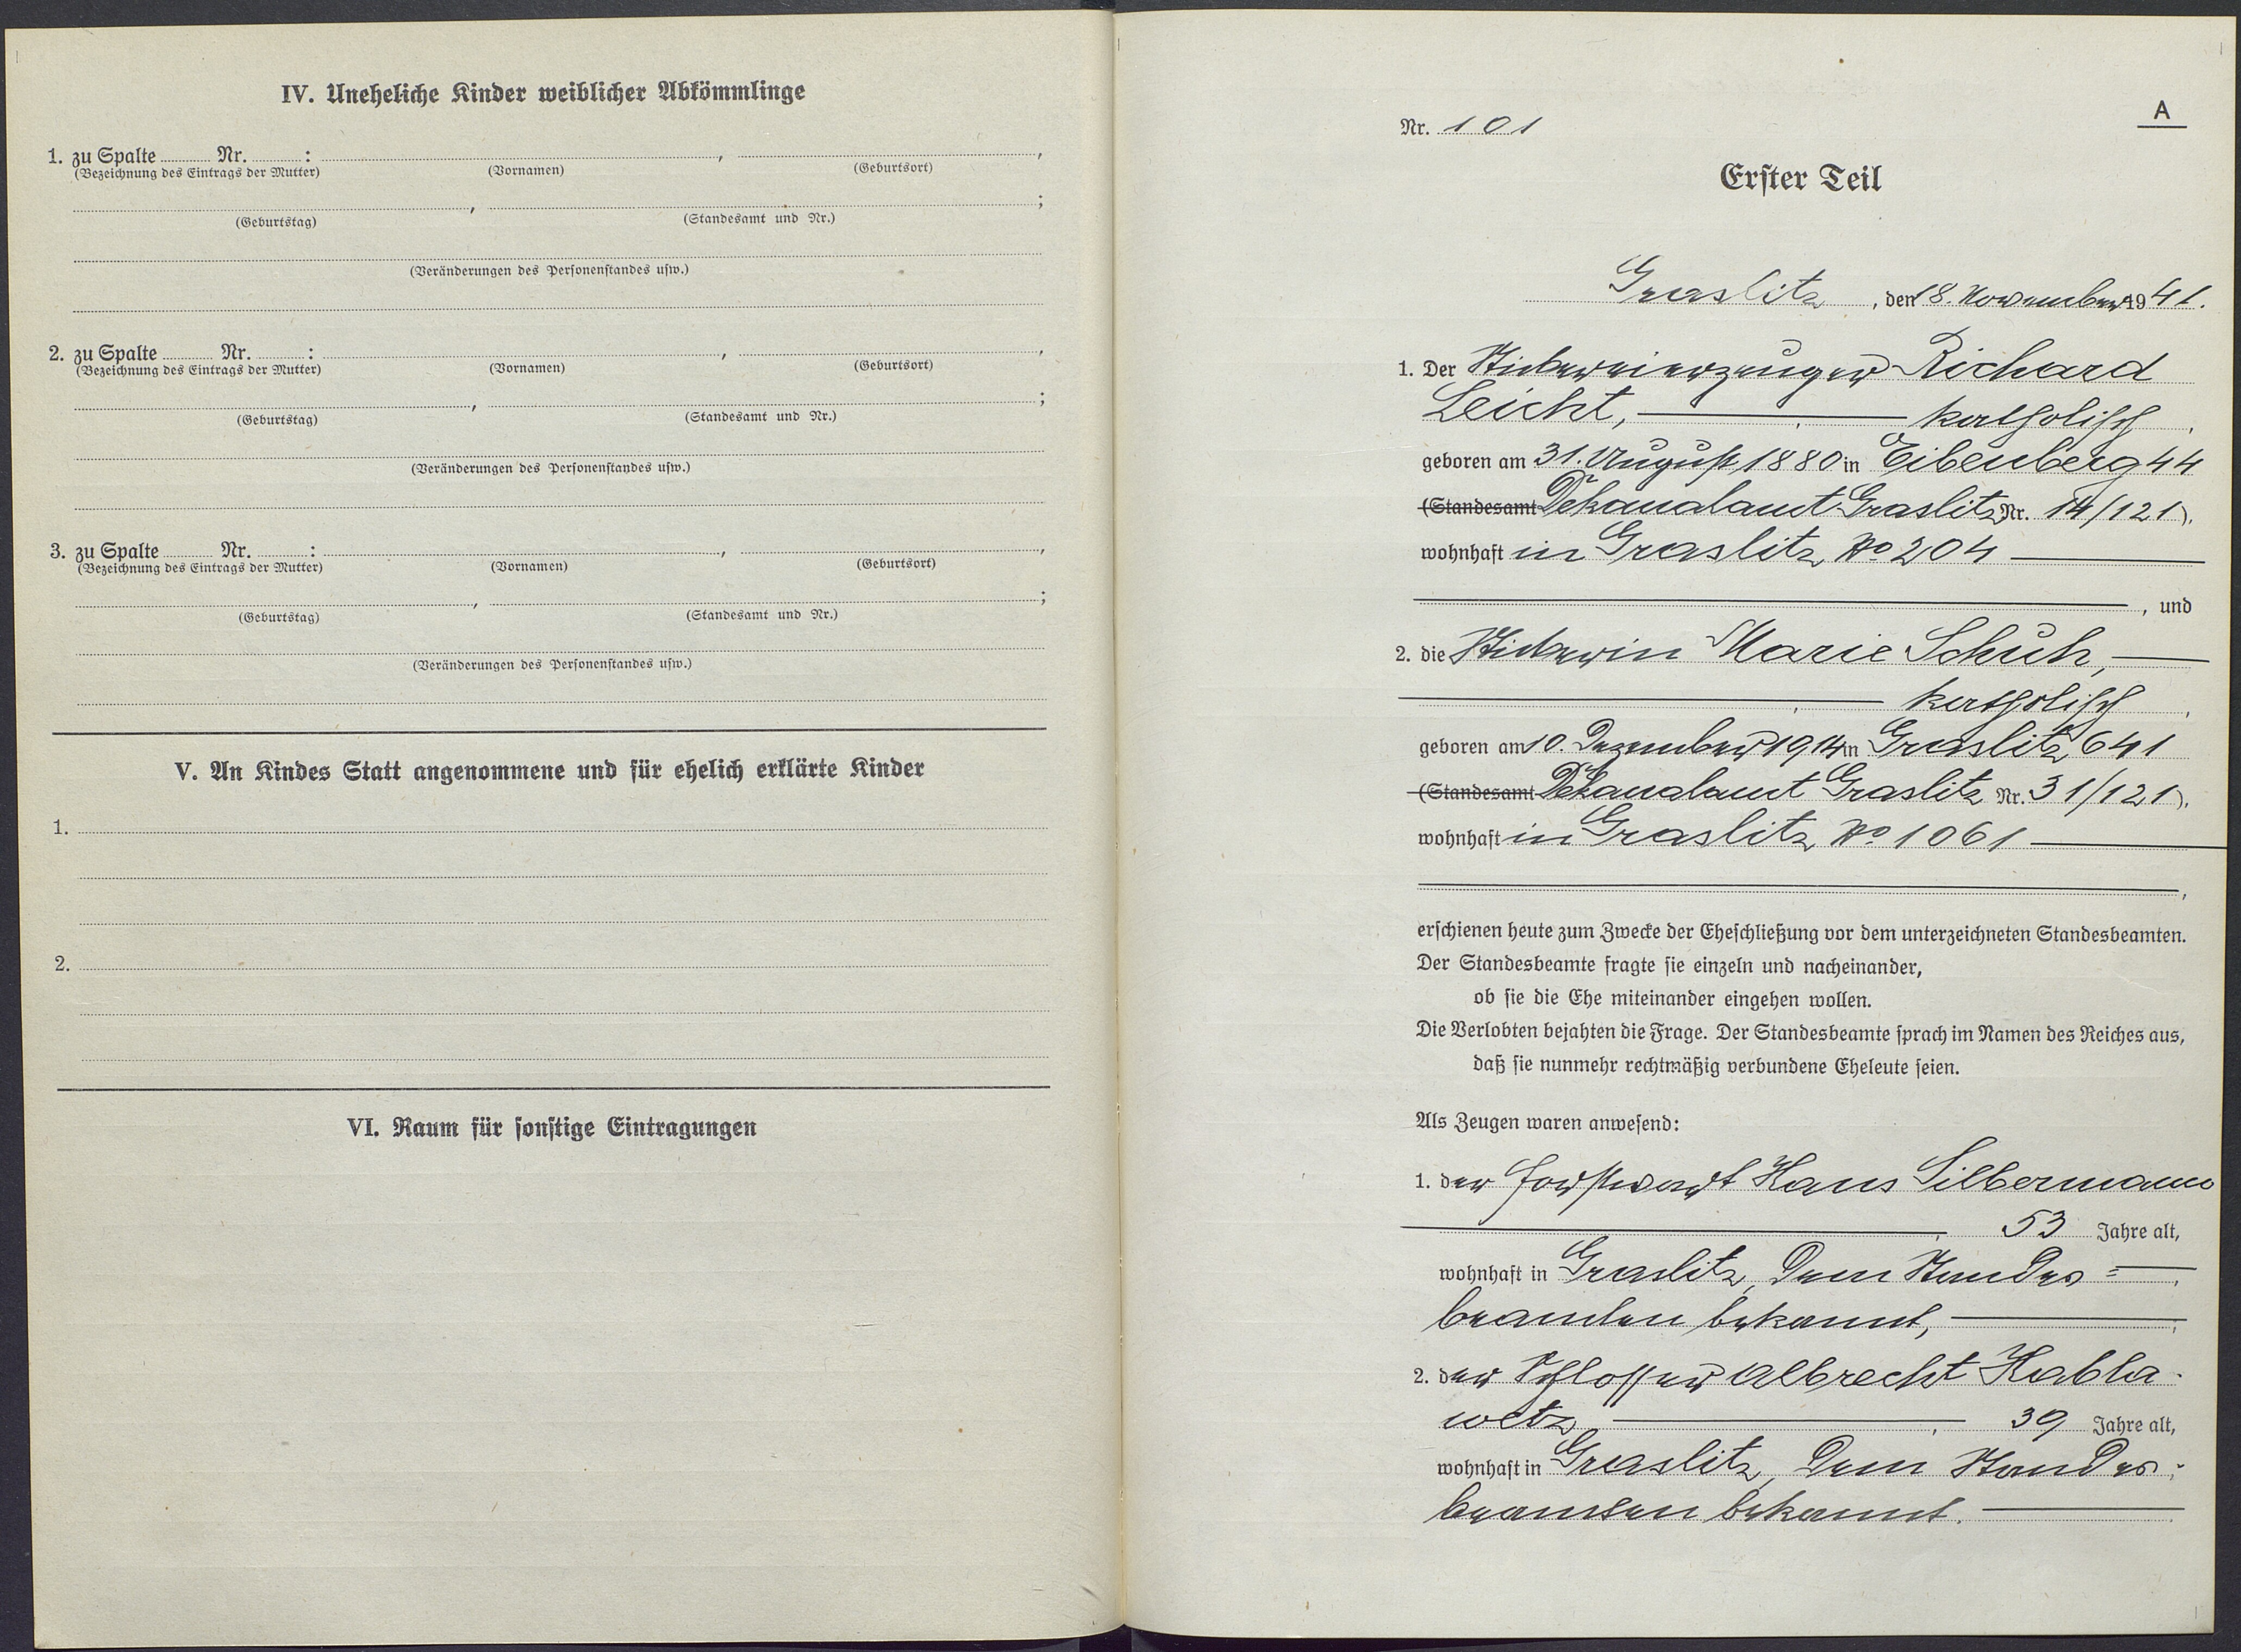 IV. Uneheliche Kinder weiblicher Abkömmlinge
1. zu Spalte ........ Nr. ........ : ........, ........,
(Bezeichnung des Eintrags der Mutter) (Vornamen) (Geburtsort)
........, ........;
(Geburtstag) (Standesamt und Nr.)
(Veränderungen des Personenstandes usw.)
2. zu Spalte ........ Nr. ........ : ........, ........,
(Bezeichnung des Eintrags der Mutter) (Vornamen) (Geburtsort)
........, ........;
(Geburtstag) (Standesamt und Nr.)
(Veränderungen des Personenstandes usw.)
3. zu Spalte ........ Nr. ........ : ........, ........,
(Bezeichnung des Eintrags der Mutter) (Vornamen) (Geburtsort)
........, ........;
(Geburtstag) (Standesamt und Nr.)
(Veränderungen des Personenstandes usw.)
V. An Kindes Statt angenommene und für ehelich erklärte Kinder
1.
2.
VI. Raum für sonstige Eintragungen
A
Nr. 101
Erster Teil
Graslitz, den 18. November 1941.
1. Der Stickereierzeuger Richard
Leicht, katholisch,
geboren am 31. August 1880 in Eibenberg 44
(Standesamt Dekanalamt Graslitz Nr. 14/121),
wohnhaft in Graslitz No 204
, und
2. die Stickerin Marie Schuh,
katholisch,
geboren am 10. Dezember 1914 in Graslitz 641
(Standesamt Dekanalamt Graslitz Nr. 31/121),
wohnhaft in Graslitz No. 1061
,
erschienen heute zum Zwecke der Eheschließung vor dem unterzeichneten Standesbeamten.
Der Standesbeamte fragte sie einzeln und nacheinander,
ob sie die Ehe miteinander eingehen wollen.
Die Verlobten bejahten die Frage. Der Standesbeamte sprach im Namen des Reiches aus,
daß sie nunmehr rechtmäßig verbundene Eheleute seien.
Als Zeugen waren anwesend:
1. der Forstwart Hans Silbermann
, 53 Jahre alt,
wohnhaft in Graslitz, dem Standes=
beamten bekannt,
2. der Schlosser Albrecht Habla-
wetz, 39 Jahre alt,
wohnhaft in Graslitz, dem Standes-
beamten bekannt.